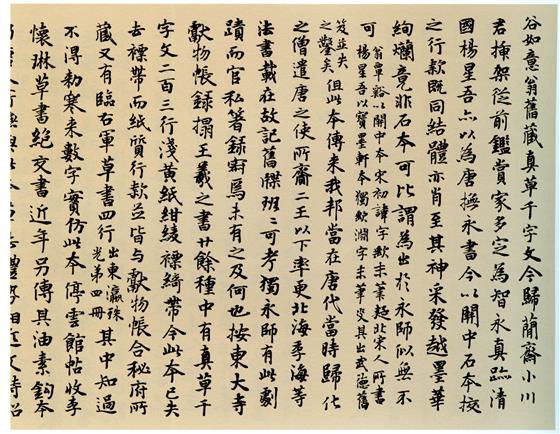 谷如意翁舊藏真草千字文今歸蕑齋小川
君插架從前鑑賞家多定為智永真跡清
國楊星吾亦以為唐橅永書今以關中石本挍
之行款既同結體亦肖至其神采發越墨華
絢爛竟非石本可比謂為出於永師似無不
可
翁覃谿以關中本宋初諱字缺末筆疑北宋人所書
楊星吾以寶墨軒本獨缺淵字末筆定其出武德舊
笈並失
之鑿矣
但此本傳來我邦當在唐代當時歸化
之僧遣唐之使所齎二王以下率更北海季海等
法書載在故記舊牒班二可考獨永師有此劇
蹟而官私箸錄寂焉未有之及何也按東大寺
獻物帳錄搨王羲之書廿餘種中有真草千
字文二百三行淺黃紙紺綾褾綺帶今此本已失
去褾帶而紙質行款並皆與獻物帳合秘府所
藏又有臨右軍草書四行
出東瀛珠
光第四冊
其中知過
不得勑寒来數字實仿此本停雲館帖收李
懷琳草書絕交書近年另傳其油素鈎本